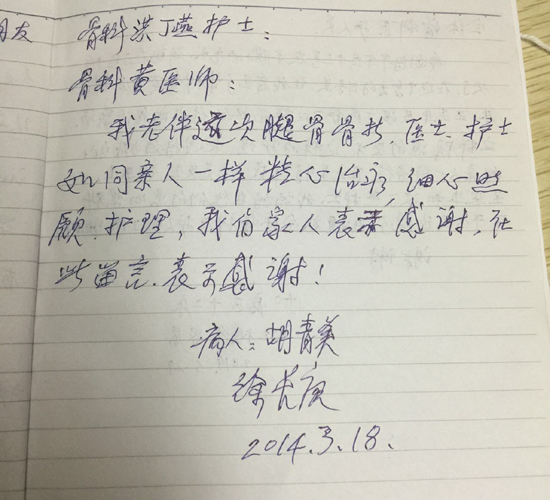 朋友
骨科洪丁燕护士：
骨科黄医师：
我老伴这次腿骨骨折、医士、护士
如同亲人一样精心治疗，细心照
顾、护理，我们家人表示感谢，在
此留言、表示感谢！
病人：胡青美
徐长庚
2014.3.18.